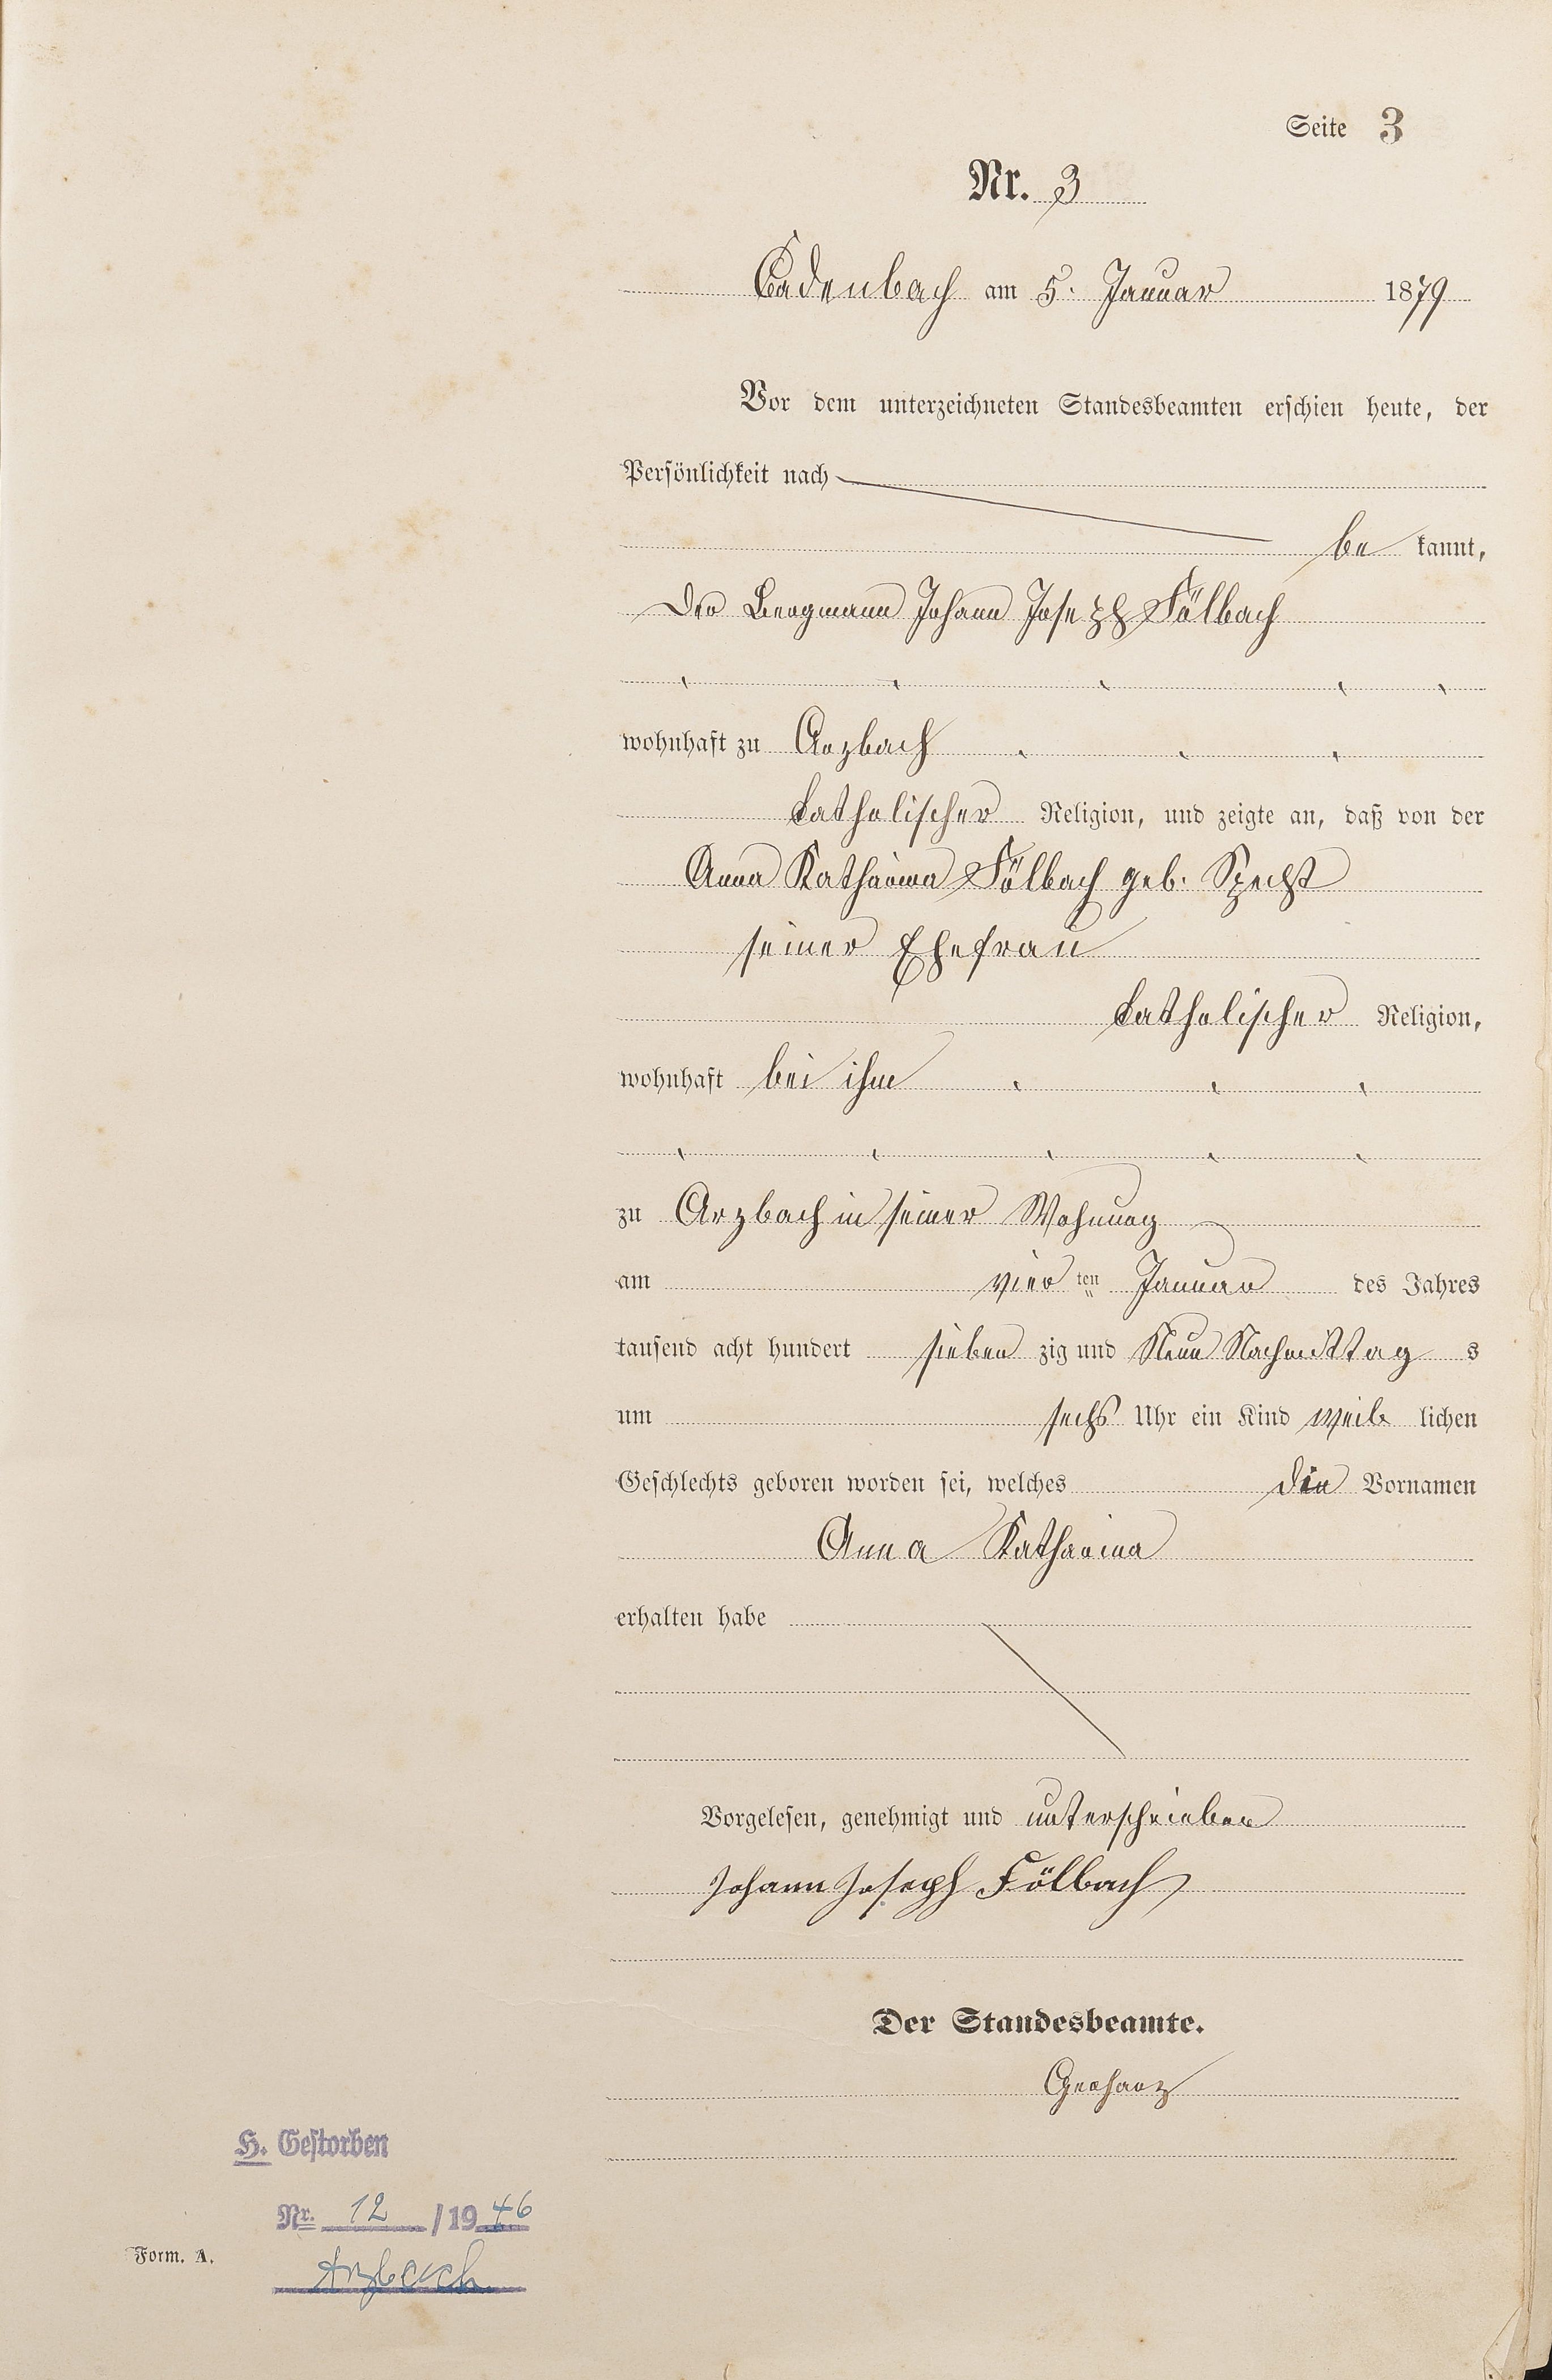 Seite 3
Nr. 3
Cadenbach am 5. Januar 1879
Vor dem unterzeichneten Standesbeamten erschien heute, der
Persönlichkeit nach
be kannt,
Der Bergmann Johann Joseph Fölbach
wohnhaft zu Arzbach
katholischer Religion, und zeigte an, daß von der
Anna Katharina Fölbach geb. Specht
seiner Ehefrau
katholischer Religion,
wohnhaft bei ihm
zu Arzbach in seiner Wohnung
am vier ten Januar des Jahres
tausend acht hundert sieben zig und Neun Nachmittag s
um sechs Uhr ein Kind weib lichen
Geschlechts geboren worden sei, welches die Vornamen
Anna Katharina
erhalten habe
Vorgelesen, genehmigt und unterschrieben
Johann Joseph Fölbach
Der Standesbeamte.
Gerharz
H. Gestorben
Nr. 12 /1946
Form. A.
Arzbach